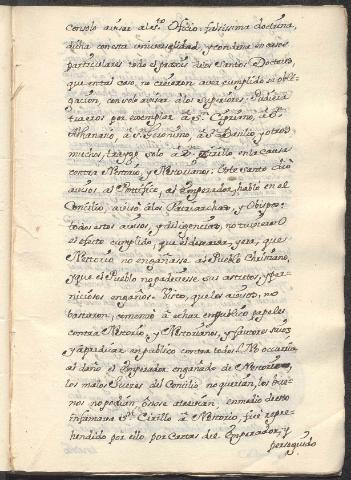 con solo avisar al S.to Oficio: falsissima doctrina,
dicha con esta universalidad, y condena en casos
particulares todo el parecer de los Santos Doctores,
que en tal caso, no creieron aver cumplido su obli-
gacion, con solo avisar a los Superiores. Pudiera
traeros por exemplar à S.n Cipriano, à S.n
Athanasio, à S.n Geronimo, à S.n Basilio, y otros
muchos, traygo solo à S.n Cirillo en la causa
contra Nestorio, y Nestorianos. Este Santo dio
avisos al Pontifice, al Emperador, hablò en el
Concilio, avisò à los Patriarchas, y Obispos:
todos estos avisos, y diligencias, no tuvieron
el efecto cumplido, que el deseava, y era, que
Nestorio no engañase al Pueblo Christiano,
y que el Pueblo no padeciesse sus astutos, y per-
niciosos engaños. Visto, que los avisos, no
bastaron; comenzò à echar en publico papeles
contra Nestorio, y Nestorianos, y fautores suios
y à predicar en publico contra todos. No ocurria
al daño el Emperador engañado de Nestorio,
los malos Jueces del Concilio no querian, los bue-
nos no podian, ò no se atrevian. en medio de esto
infamava S.n Cirillo à Nestorio, fuè repre-
hendido por ello, por cartas del Emperador, y
perseguido